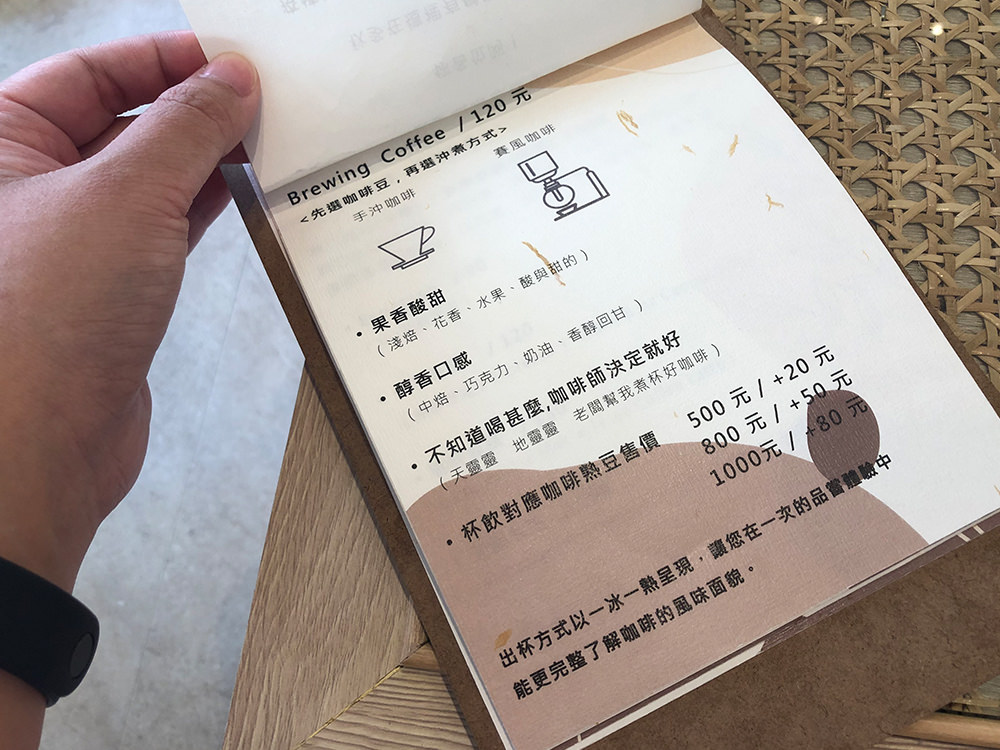 Brewing Coffee / 120 元
<先選咖啡豆，再選沖煮方式>
手沖咖啡 賽風咖啡
• 果香酸甜
（淺焙、花香、水果、酸與甜的）
• 醇香口感
（中焙、巧克力、奶油、香醇回甘 ）
• 不知道喝甚麼,咖啡師決定就好
（天靈靈 地靈靈 老闆幫我煮杯好咖啡）
• 杯飲對應咖啡熟豆售價 500 元 / +20 元
800 元 / +50 元
1000元 / +80 元
出杯方式以一冰一熱呈現，讓您在一次的品嘗體驗中
能更完整了解咖啡的風味面貌。